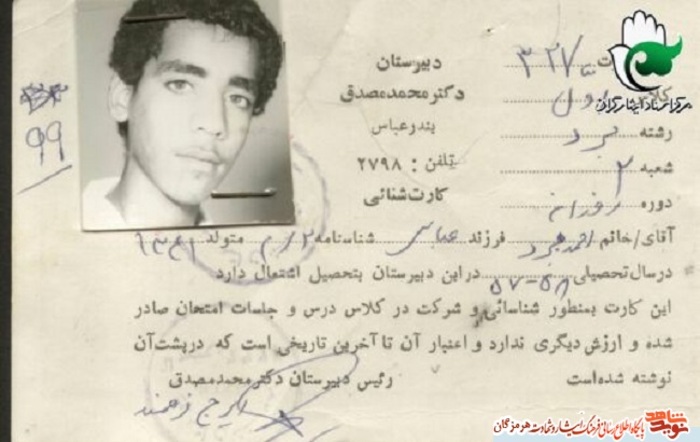 دبیرستان
دکتر محمد مصدق
بندرعباس
تلفن : ۲۷۹۸
کارت شناسائی
۳۲۷
کلاس اول
رشته
شعبه ۲
دوره روزانه
99
آقای/خانم احمد فرزند عباس شناسنامه متولد ۱۳۴۱
در سال تحصیلی ۵۷-۵۸ در این دبیرستان بتحصیل اشتغال دارد
این کارت بمنظور شناسائی و شرکت در کلاس درس و جلسات امتحان صادر
شده و ارزش دیگری ندارد و اعتبار آن تا آخرین تاریخی است که در پشت آن
نوشته شده است
رئیس دبیرستان دکتر محمد مصدق
ایرج
مرکز اسناد ایثارگران
نوید شاهد
پایگاه اطلاع رسانی فرهنگ ایثار و شهادت هرمزگان